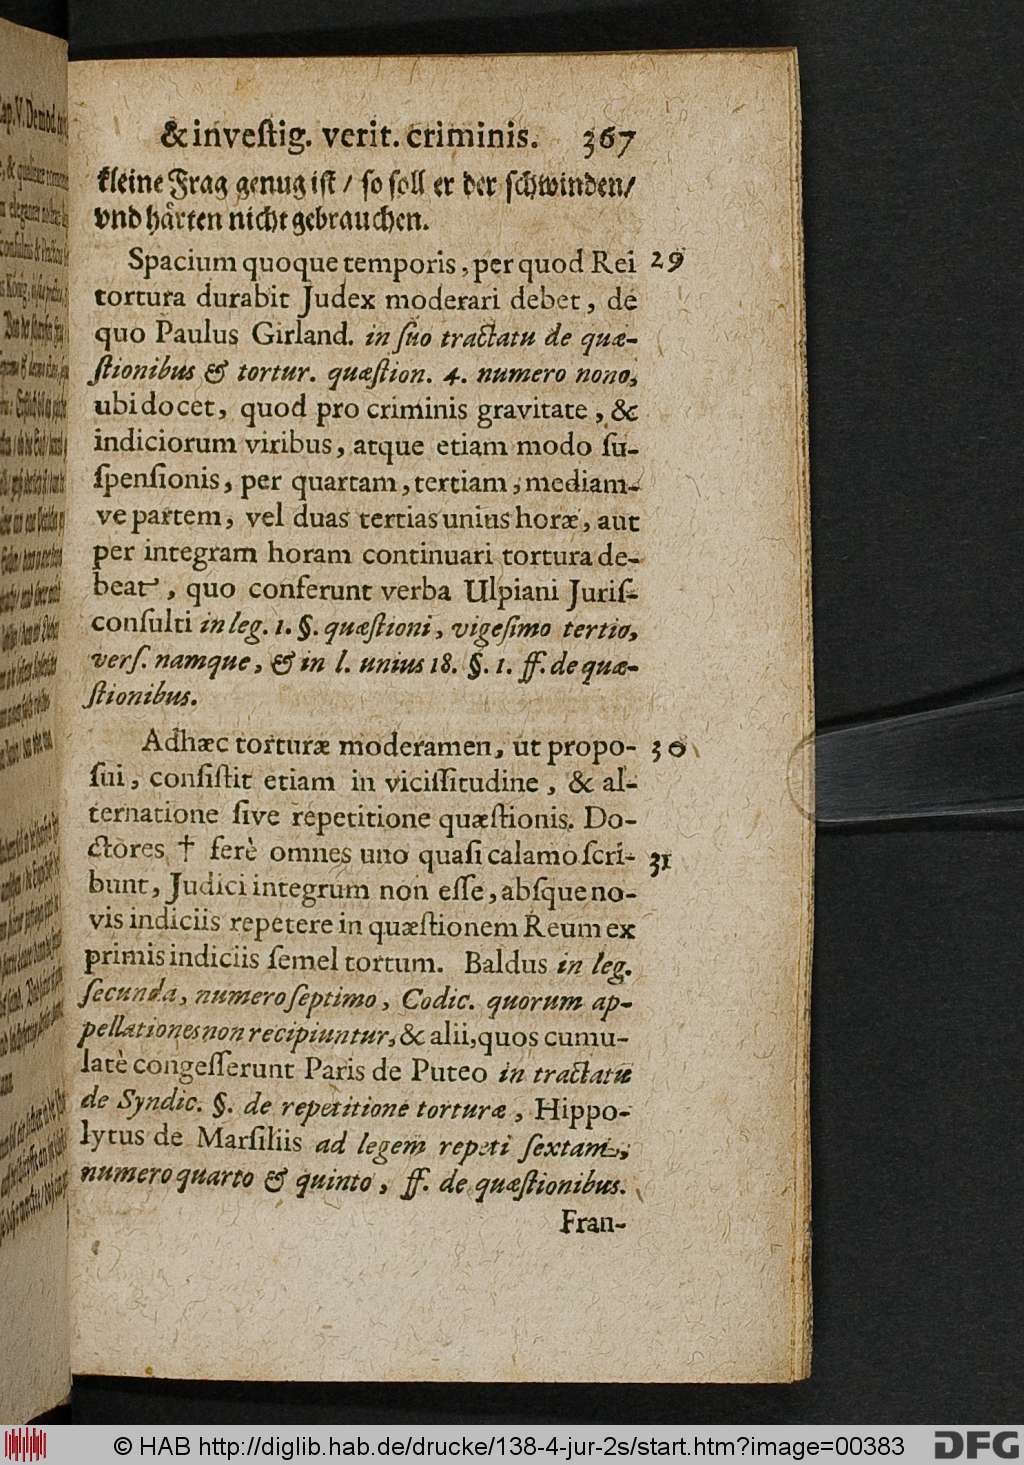 & inveſtig. verit. criminis. 367
kleine Frag genug iſt / ſo ſoll er der ſchwinden/
vnd haͤrten nicht gebrauchen.
Spacium quoque temporis, per quod Rei 29
tortura durabit Judex moderari debet, de
quo Paulus Girland. in ſuo tractatu de quæ-
ſtionibus & tortur. quæſtion. 4. numero nono,
ubi docet, quod pro criminis gravitate, &
indiciorum viribus, atque etiam modo ſu-
ſpenſionis, per quartam, tertiam, mediam-
ve partem, vel duas tertias unius horæ, aut
per integram horam continuari tortura de-
beat, quo conferunt verba Ulpiani Juriſ-
conſulti in leg. 1. §. quæſtioni, vigeſimo tertio,
verſ. namque, & in l. unius 18. §. 1. ff. de quæ-
ſtionibus.
Adhæc torturæ moderamen, ut propo- 30
ſui, conſiſtit etiam in viciſſitudine, & al-
ternatione ſive repetitione quæſtionis. Do-
ctores † ferè omnes uno quaſi calamo ſcri- 31
bunt, Judici integrum non eſſe, abſque no-
vis indiciis repetere in quæſtionem Reum ex
primis indiciis ſemel tortum. Baldus in leg.
ſecunda, numero ſeptimo, Codic. quorum ap-
pellationes non recipiuntur, & alii, quos cumu-
latè congeſſerunt Paris de Puteo in tractatu
de Syndic. §. de repetitione torturæ, Hippo-
lytus de Marſiliis ad legem repeti ſextam,
numero quarto & quinto, ff. de quæſtionibus.
Fran-
© HAB http://diglib.hab.de/drucke/138-4-jur-2s/start.htm?image=00383 DFG